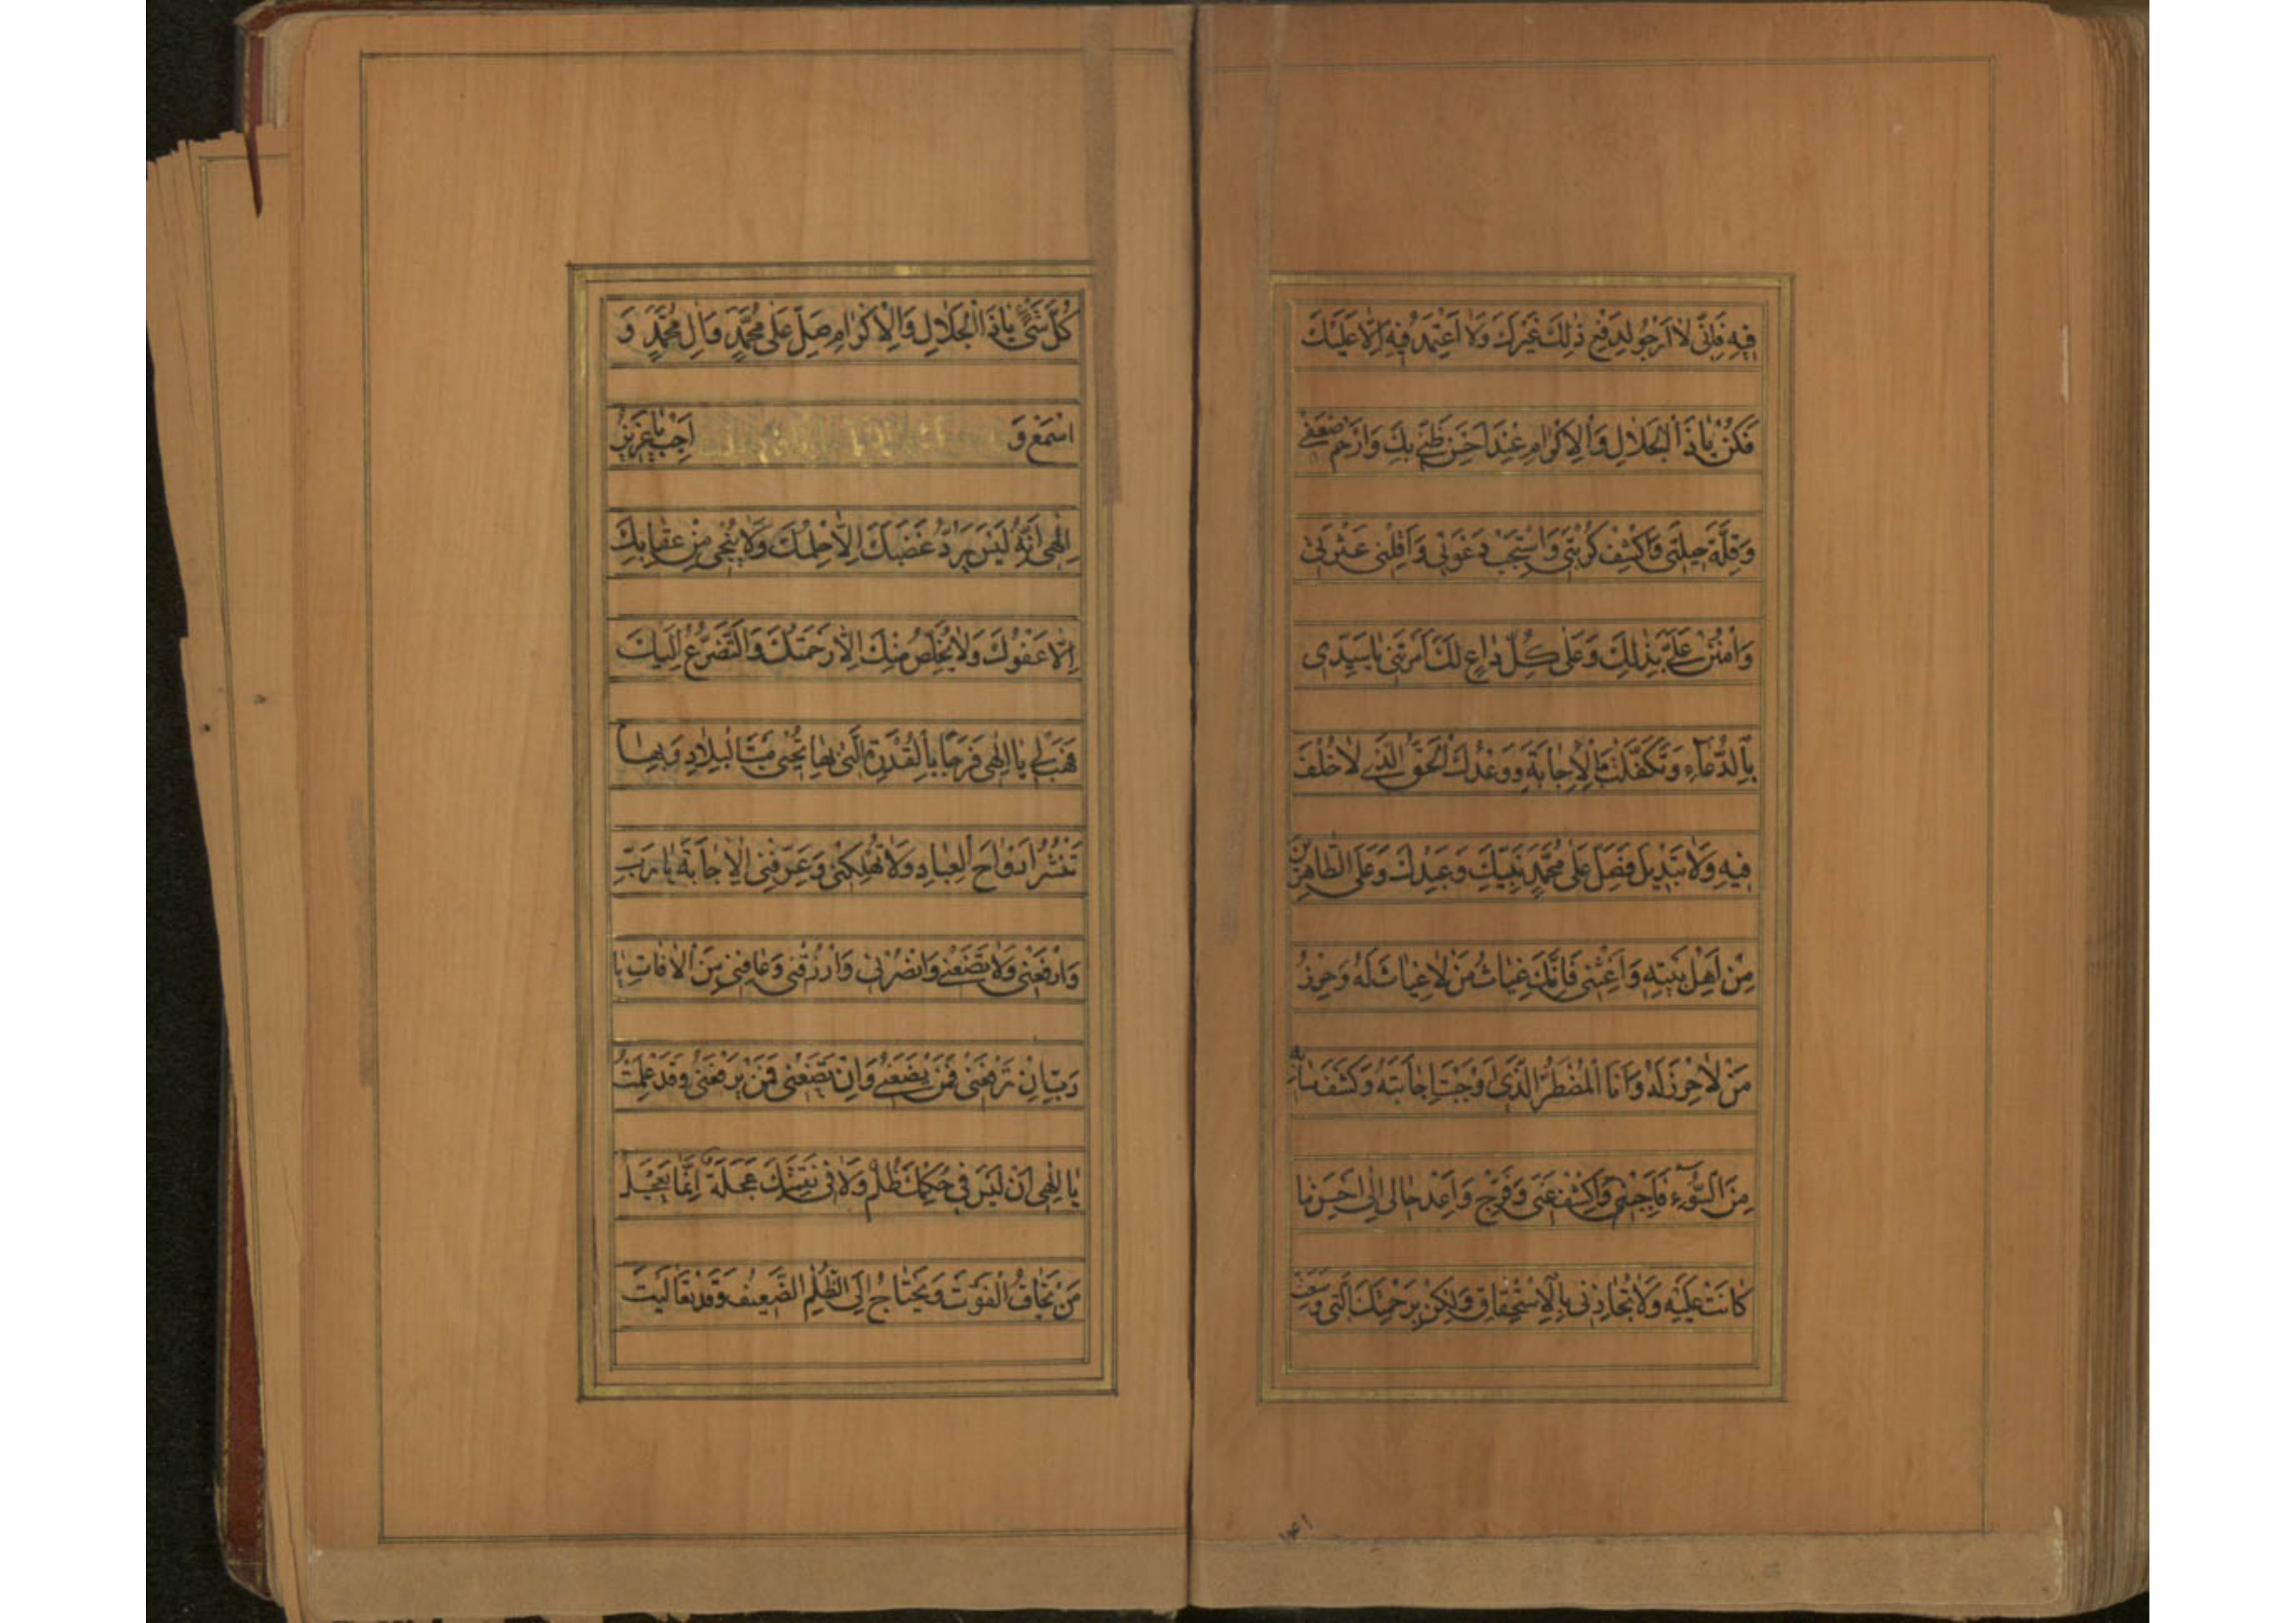 فِيهِ فَاِنّى لٰا اَرْجُو لِدَفْعِ ذٰلِكَ غَيْرَكَ وَلٰا اَعْتَمِدُ فِيهِ اِلّٰا عَلَيْكَ
فَكُنْ يٰا ذَا الْجَلٰالِ وَالْاِكْرٰامِ عِنْدَ اَحْسَنِ ظَنّى بِكَ وَارْحَمْ ضَعْفى
وَقِلَّةَ حيلَتى وَاكْشِفْ كُرْبَتى وَاسْتَجِبْ دَعْوَتى وَاَقِلْنى عَثْرَتى
وَامْنُنْ عَلَىَّ بِذٰلِكَ وَعَلٰى كُلِّ دٰاعٍ لَكَ اَمَرْتَنى يٰا سَيِّدى
بِالدُّعٰاءِ وَتَكَفَّلْتَ بِالْاِجٰابَةِ وَوَعْدُكَ الْحَقُّ الَّذى لٰا خُلْفَ
فيهِ وَلٰا تَبْديلَ فَصَلِّ عَلٰى مُحَمَّدٍ نَبِيِّكَ وَعَبْدِكَ وَعَلَى الطّٰاهِرينَ
مِنْ اَهْلِ بَيْتِهِ وَاَغِثْنى فَاِنَّكَ غِيٰاثُ مَنْ لٰا غِيٰاثَ لَهُ وَحِرْزُ
مَنْ لٰا حِرْزَ لَهُ وَاَنَا الْمُضْطَرُّ الَّذى اَوْجَبْتَ اِجٰابَتَهُ وَكَشْفَ مٰا بِهِ
مِنَ السُّوٓءِ فَاَجِبْنى وَاكْشِفْ عَنّى وَفَرِّجْ وَاَعِدْ حٰالى اِلٰى اَحْسَنِ مٰا
كٰانَتْ عَلَيْهِ وَلٰا تُجٰازِنى بِالْاِسْتِحْقٰاقِ وَلٰكِنْ بِرَحْمَتِكَ الَّتى وَسِعَتْ
۱۴۱
كُلَّ شَىْءٍ يٰا ذَا الْجَلٰالِ وَالْاِكْرٰامِ صَلِّ عَلٰى مُحَمَّدٍ وَاٰلِ مُحَمَّدٍ وَ
اسْمَعْ وَ اَجِبْ يٰا عَزيزُ
اِلٰهى اِنَّهُ لَيْسَ يَرُدُّ غَضَبَكَ اِلّٰا حِلْمُكَ وَلٰا يُنْجى مِنْ عِقٰابِكَ
اِلّٰا عَفْوُكَ وَلٰا يُخَلِّصُ مِنْكَ اِلّٰا رَحْمَتُكَ وَالتَّضَرُّعُ اِلَيْكَ
فَهَبْ لى يٰا اِلٰهى فَرَجًا بِالْقُدْرَةِ الَّتى بِهٰا تُحْيى مَيْتَ الْبِلٰادِ وَبِهٰا
تَنْشُرُ اَرْوٰاحَ الْعِبٰادِ وَلٰا تُهْلِكْنى وَعَرِّفْنِى الْاِجٰابَةَ يٰا رَبِّ
وَارْفَعْنى وَلٰا تَضَعْنى وَانْصُرْنى وَارْزُقْنى وَعٰافِنى مِنَ الْاٰفٰاتِ يٰا
رَبِّ اِنْ تَرْفَعْنى فَمَنْ يَضَعُنى وَاِنْ تَضَعْنى فَمَنْ يَرْفَعُنى وَقَدْ عَلِمْتُ
يٰا اِلٰهى اَنْ لَيْسَ فى حُكْمِكَ ظُلْمٌ وَلٰا فى نَقِمَتِكَ عَجَلَةٌ اِنَّمٰا يَعْجَلُ
مَنْ يَخٰافُ الْفَوْتَ وَيَحْتٰاجُ اِلَى الظُّلْمِ الضَّعيفُ وَقَدْ تَعٰالَيْتَ